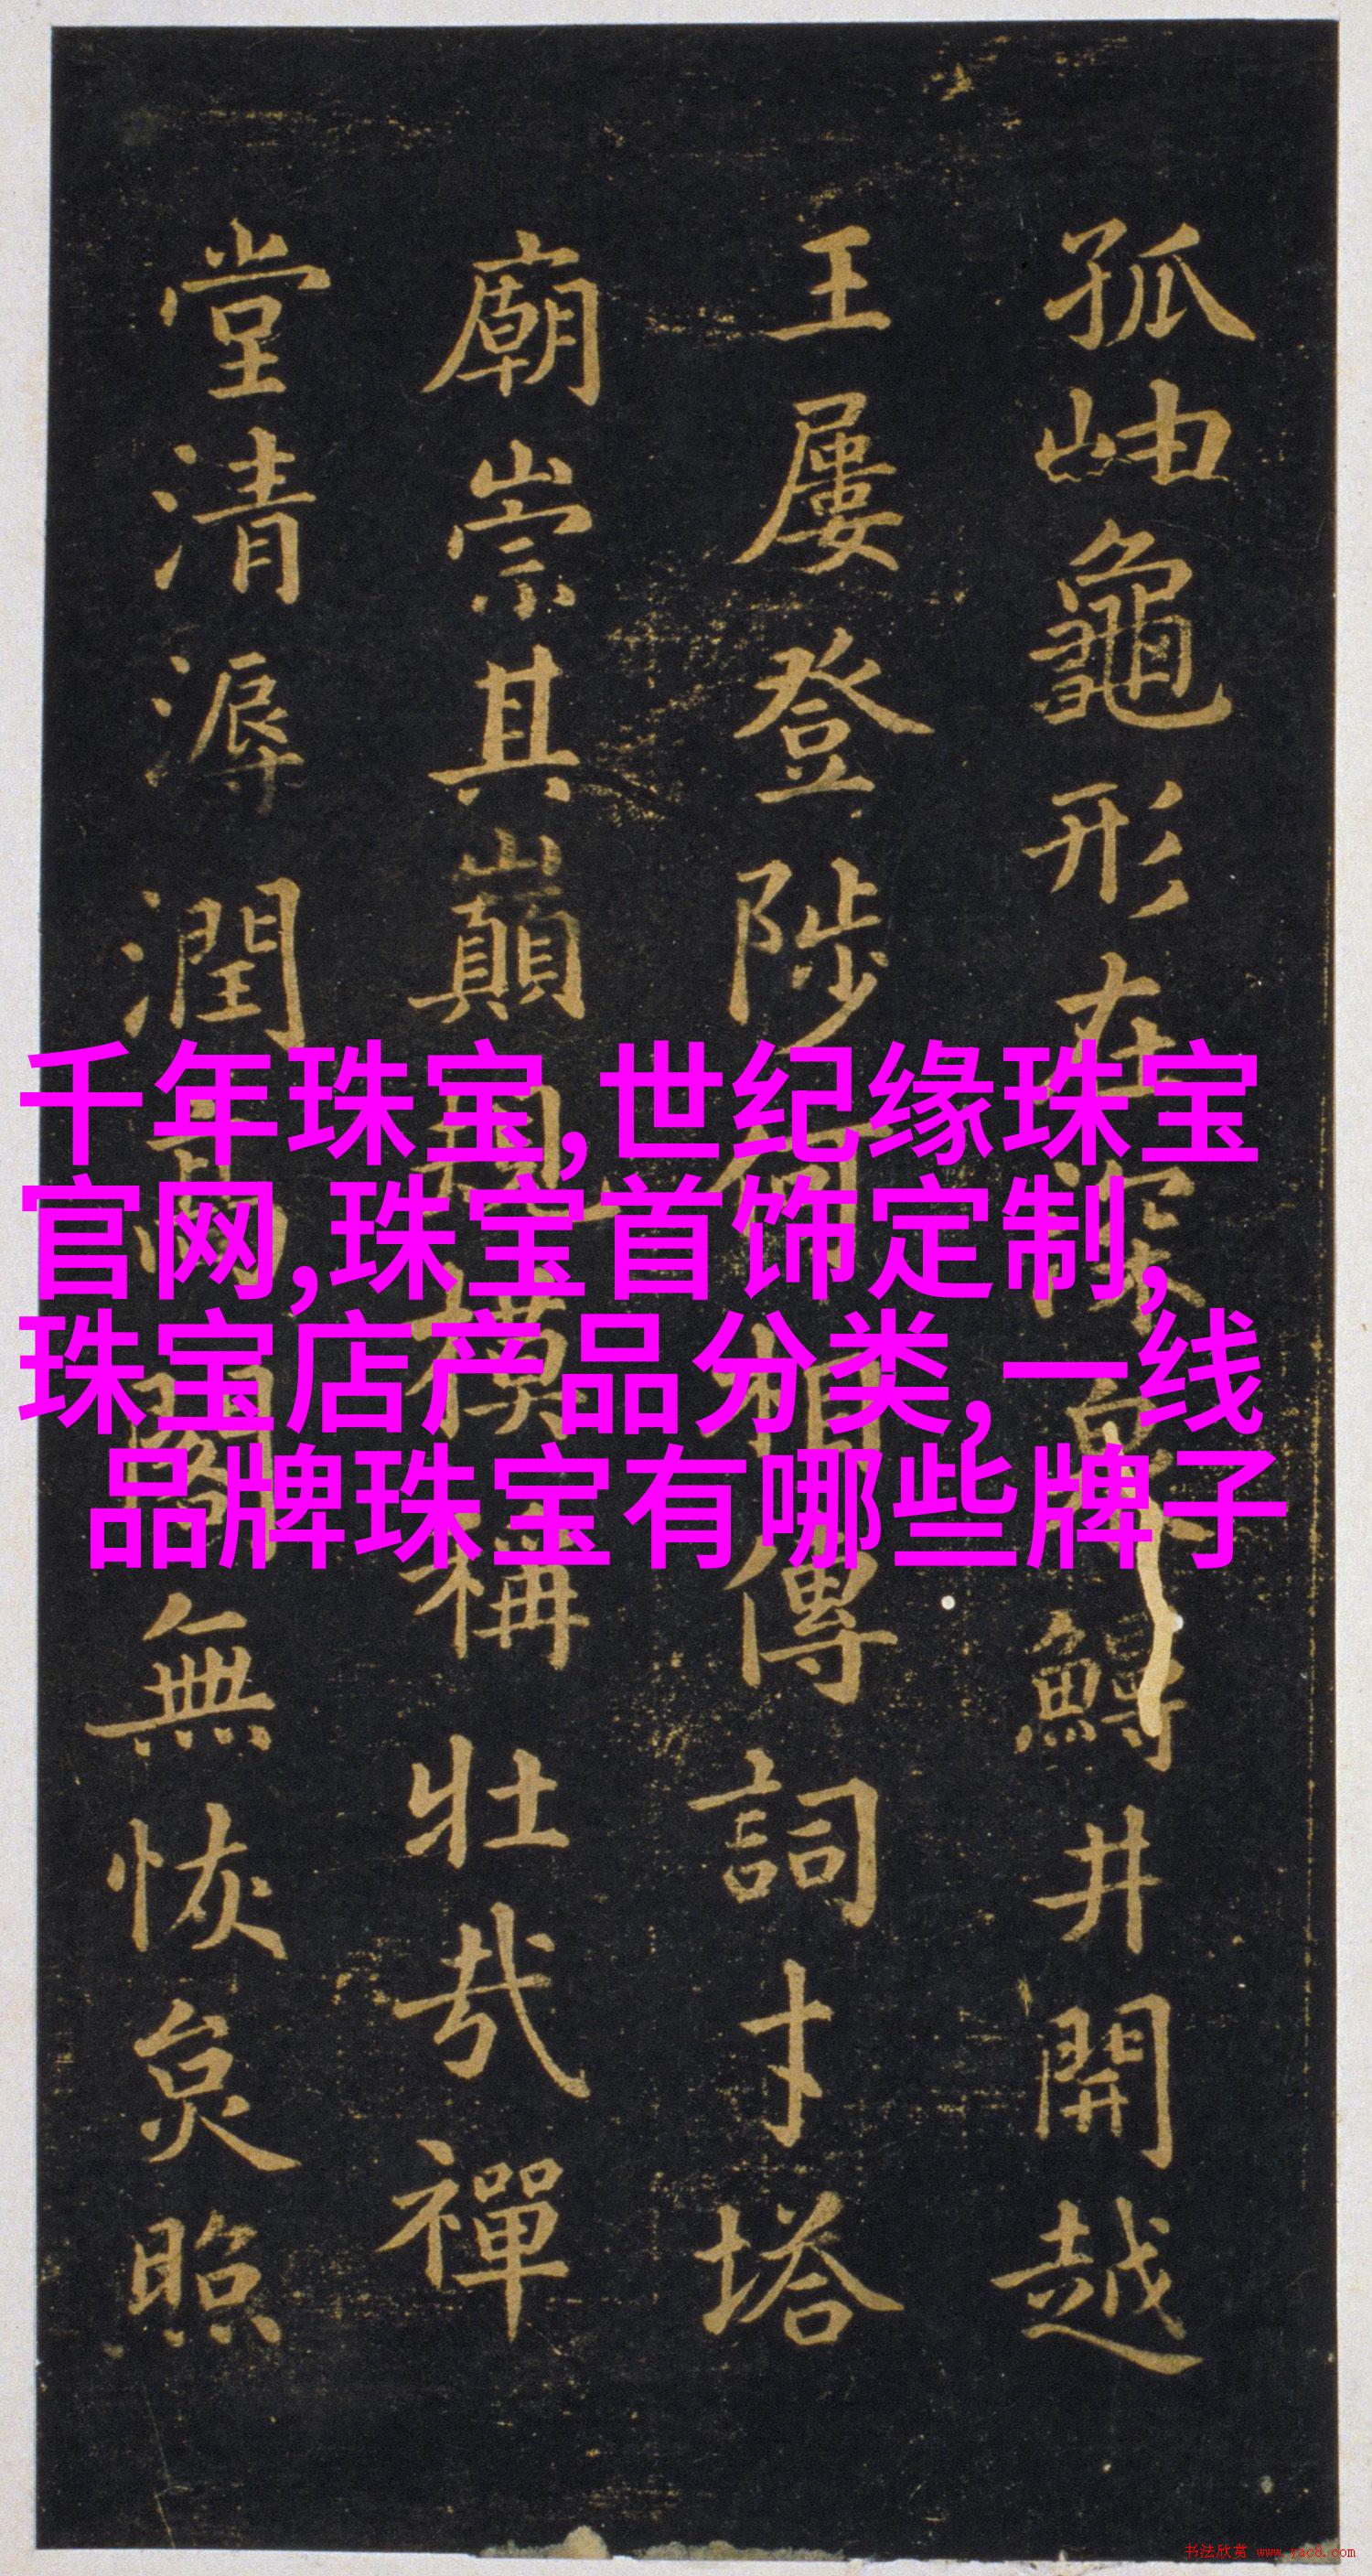 孤岫龜形在深泉井開越
王屢登陟何相傳詞才塔
廟崇其巔規模稱壯哉禪
堂清溽潤高閣無恢炱照
千年珠宝,世纪缘珠宝
官网,珠宝首饰定制,
珠宝店产品分类,一线
品牌珠宝有哪些牌子
书法欣赏 www.yac8.com